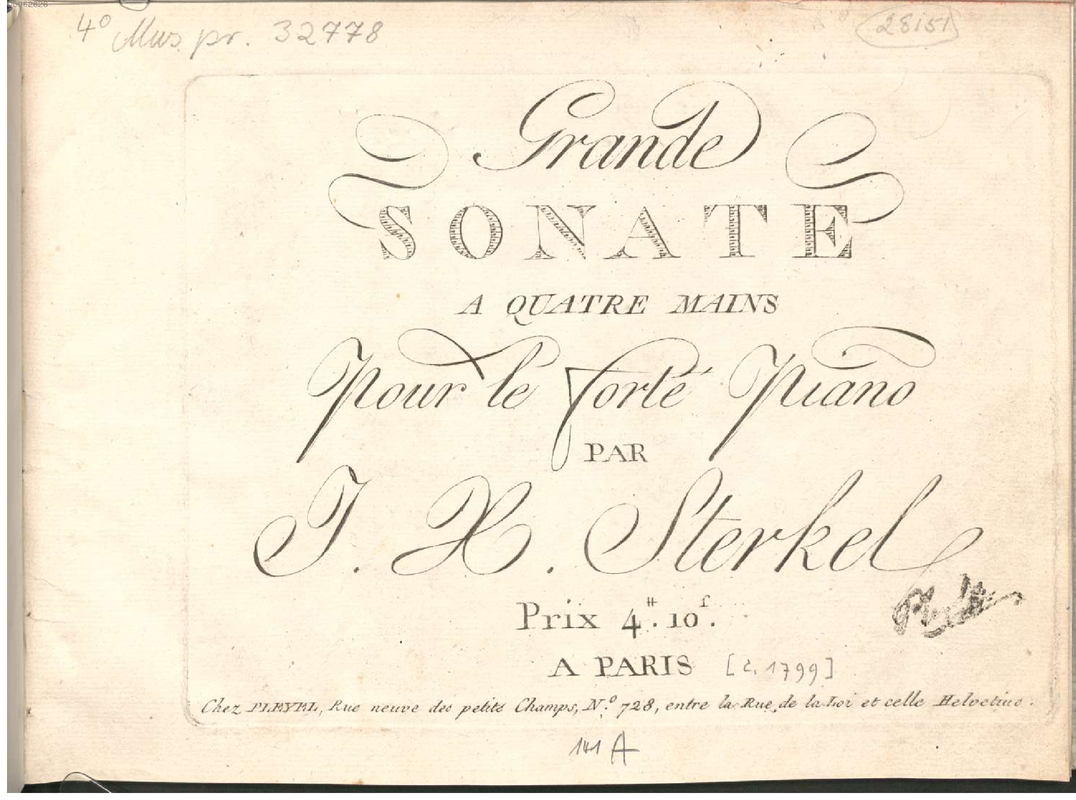 4° Mus. pr. 32778
28151
Grande
SONATE
A QUATRE MAINS
Pour le Forté Piano
PAR
J. X. Sterkel
Prix 4.ᵗᵗ 10.ᶠ
A PARIS [c. 1799]
Chez PLEYEL, Rue neuve des petits Champs, N.° 728, entre la Rue de la Loi et celle Helvetius.
141 A